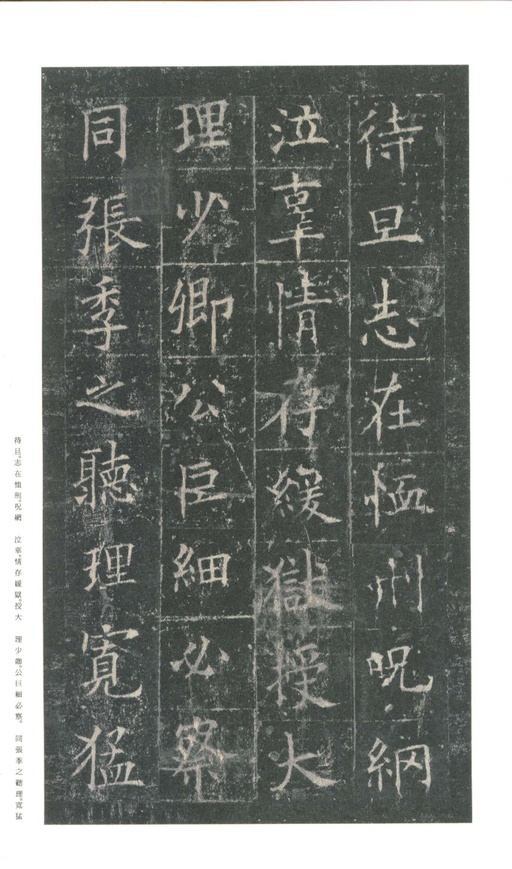 待旦志在恤刑咒網
泣辜情存緩獄授大
理少卿公巨細必察
同張季之聽理寬猛
待旦。志在恤刑。咒網　泣辜。情存緩獄。授大　理少卿。公巨細必察。　同張季之聽理。寬猛